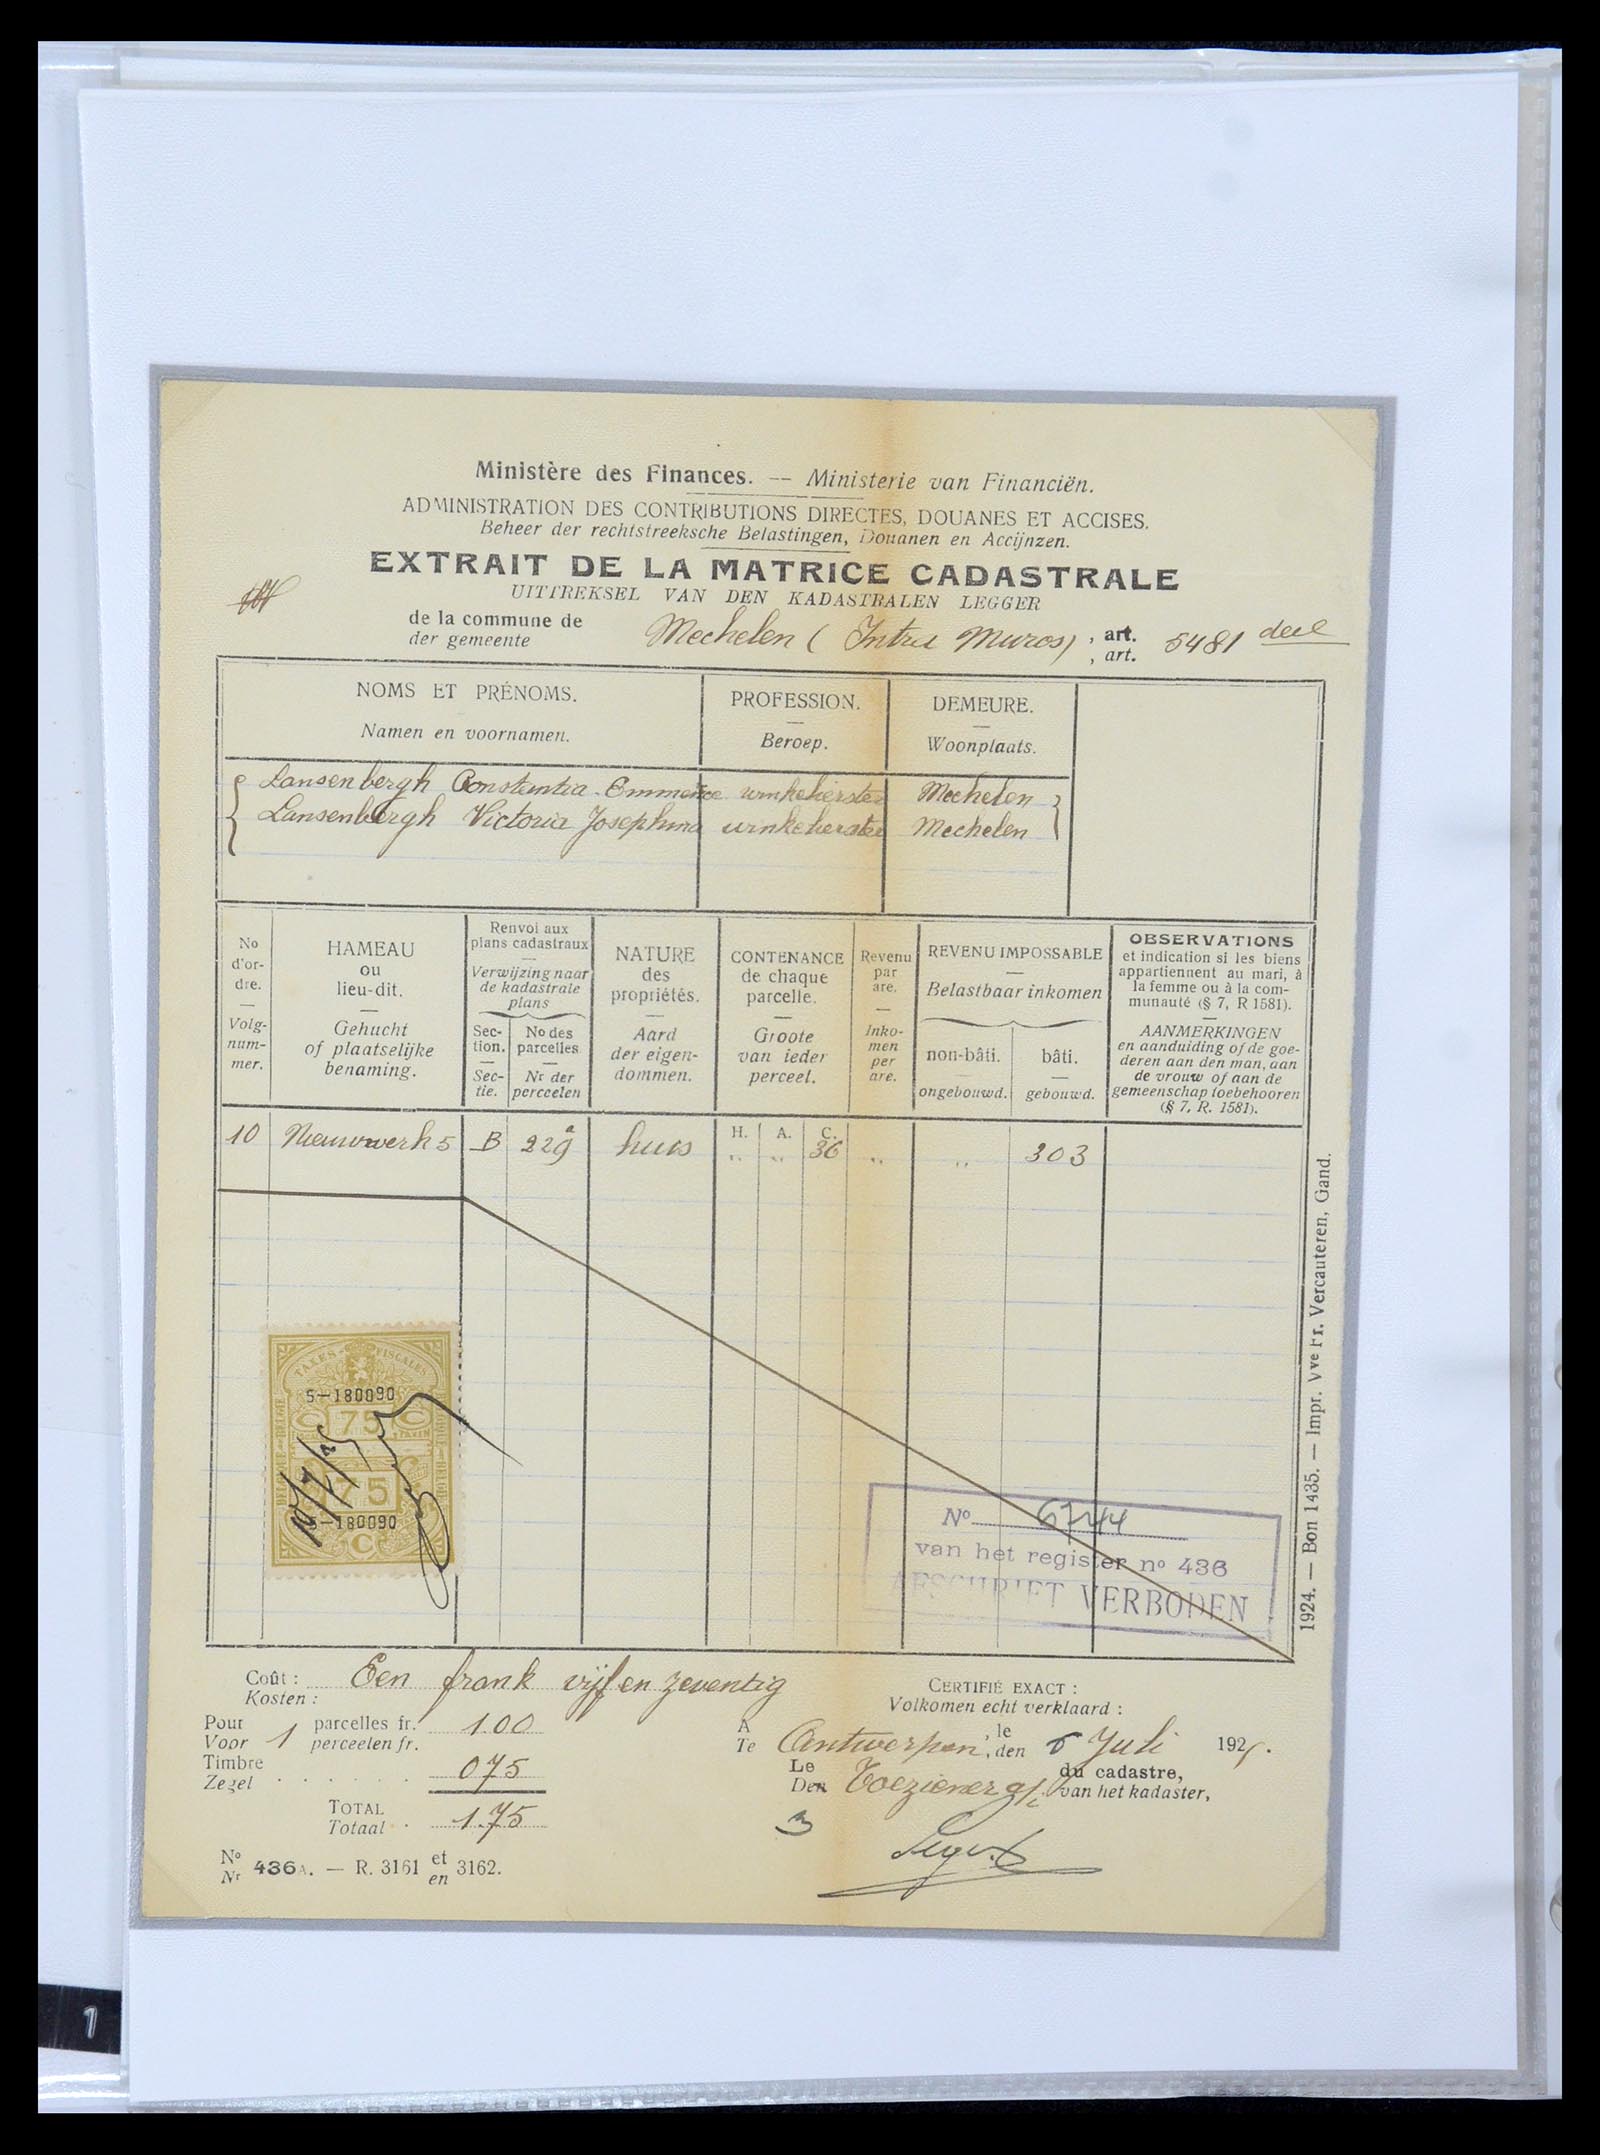 Ministère des Finances. — Ministerie van Financiën.
ADMINISTRATION DES CONTRIBUTIONS DIRECTES, DOUANES ET ACCISES.
Beheer der rechtstreeksche Belastingen, Douanen en Accijnzen.
EXTRAIT DE LA MATRICE CADASTRALE
UITTREKSEL VAN DEN KADASTRALEN LEGGER
de la commune de
der gemeente
Mechelen (Intra Muros), art. 5481 deel
, art.
NOMS ET PRÉNOMS.
Namen en voornamen.
PROFESSION.
Beroep.
DEMEURE.
Woonplaats.
Lansenbergh Constantia winkelierster Mechelen
Lansenbergh Victoria Josephina winkelierster Mechelen
No d'or-
dre.
Volg-
num-
mer.
HAMEAU
ou
lieu-dit.
Gehucht
of plaatselijke
benaming.
Renvoi aux
plans cadastraux
Verwijzing naar
de kadastrale
plans
Sec-
tion.
Sec-
tie.
No des
parcelles
Nr der
perceelen
NATURE
des
propriétés.
Aard
der eigen-
dommen.
CONTENANCE
de chaque
parcelle.
Groote
van ieder
perceel.
Revenu
par
are.
Inko-
men
per
are.
REVENU IMPOSSABLE
Belastbaar inkomen
non-bâti.
ongebouwd.
bâti.
gebouwd.
OBSERVATIONS
et indication si les biens
appartiennent au mari, à
la femme ou à la com-
munauté (§ 7, R 1581).
AANMERKINGEN
en aanduiding of de goe-
deren aan den man, aan
de vrouw of aan de
gemeenschap toebehooren
(§ 7, R. 1581).
H. A. C.
10 Nieuwwerk 5 B 229a huis „ „ 36 „ „ 303
TAXES FISCALES
5-180090
C 75 C
TAXEN
BELGIQUE-BELGIË
10/7/25
75
5-180090
C
No 6744
van het register no 436
AFSCHRIFT VERBODEN
1924. — Bon 1435. — Impr. Vve Fr. Vercauteren, Gand.
Coût :
Kosten :
Een frank vijf en zeventig
Pour
Voor
1
parcelles fr.
perceelen fr.
1.00
Timbre
Zegel
075
TOTAL
Totaal
1.75
No
Nr
436A. — R. 3161 et
en 3162.
CERTIFIÉ EXACT :
Volkomen echt verklaard :
A
Te
Antwerpen, le
, den
6 Juli 1925.
Le
Den
Toeziener
du cadastre,
van het kadaster,
3
1